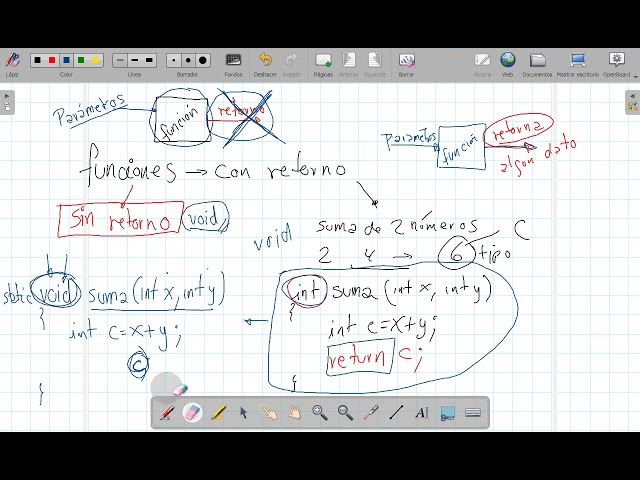 Lápiz Color Línea Borrador Fondos Deshacer Repetir Páginas Anterior Siguiente Borrar Web Documentos Mostrar escritorio OpenBoard
Parámetros
función
retorno
Parámetros
función
retorna
algún dato
funciones → con retorno
sin retorno void
void
suma de 2 números
2 4 → 6 tipo
C
static void suma (int x, int y)
{
int c=x+y;
c
}
int suma (int x, int y)
{
int c=x+y;
return c;
}